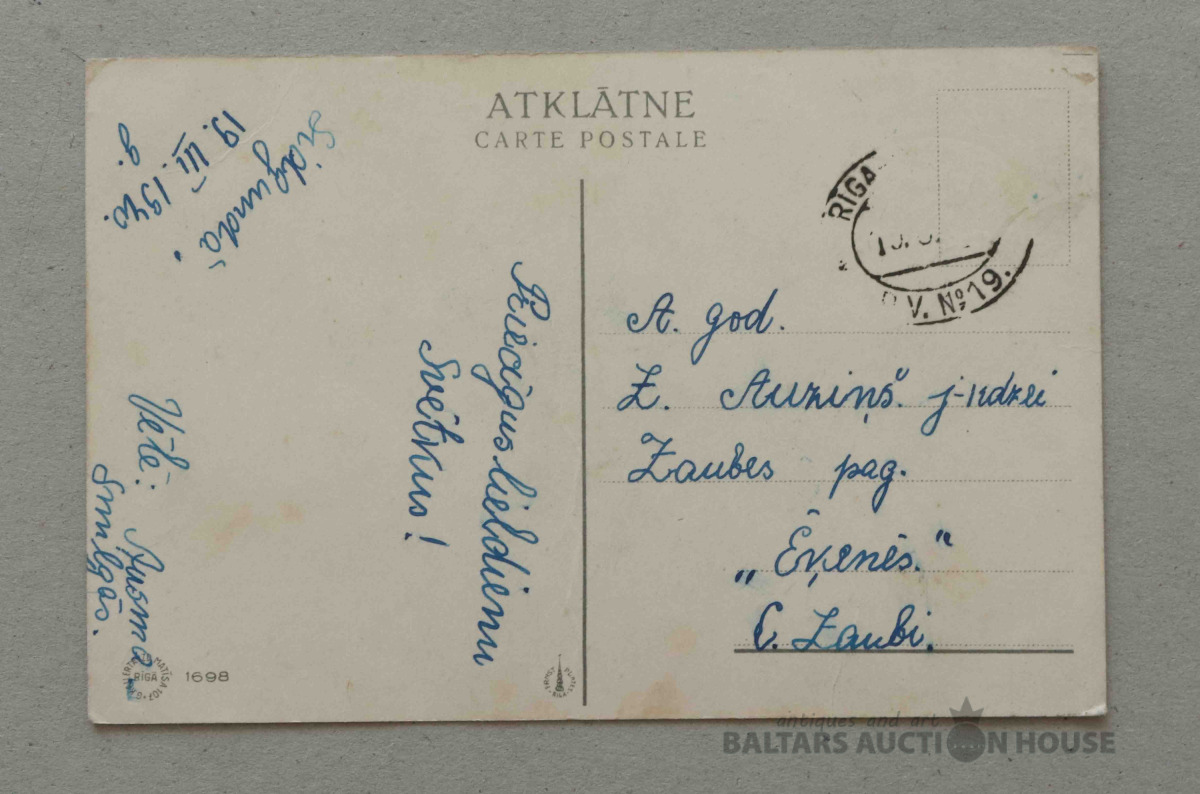 ATKLĀTNE
CARTE POSTALE
Sidgundā,
19. III. 1940.
g.
Priecīgus lieldienu
Svētkus!
Vēlē: Ausma
Smilgās.
RĪGA
V. № 19.
A. god.
Z. Auziņš. j-kdzei
Zaubes pag.
„Ēķenēs.“
C. Zaubi.
RĪGĀ
1698
antiques and art
BALTARS AUCTION HOUSE